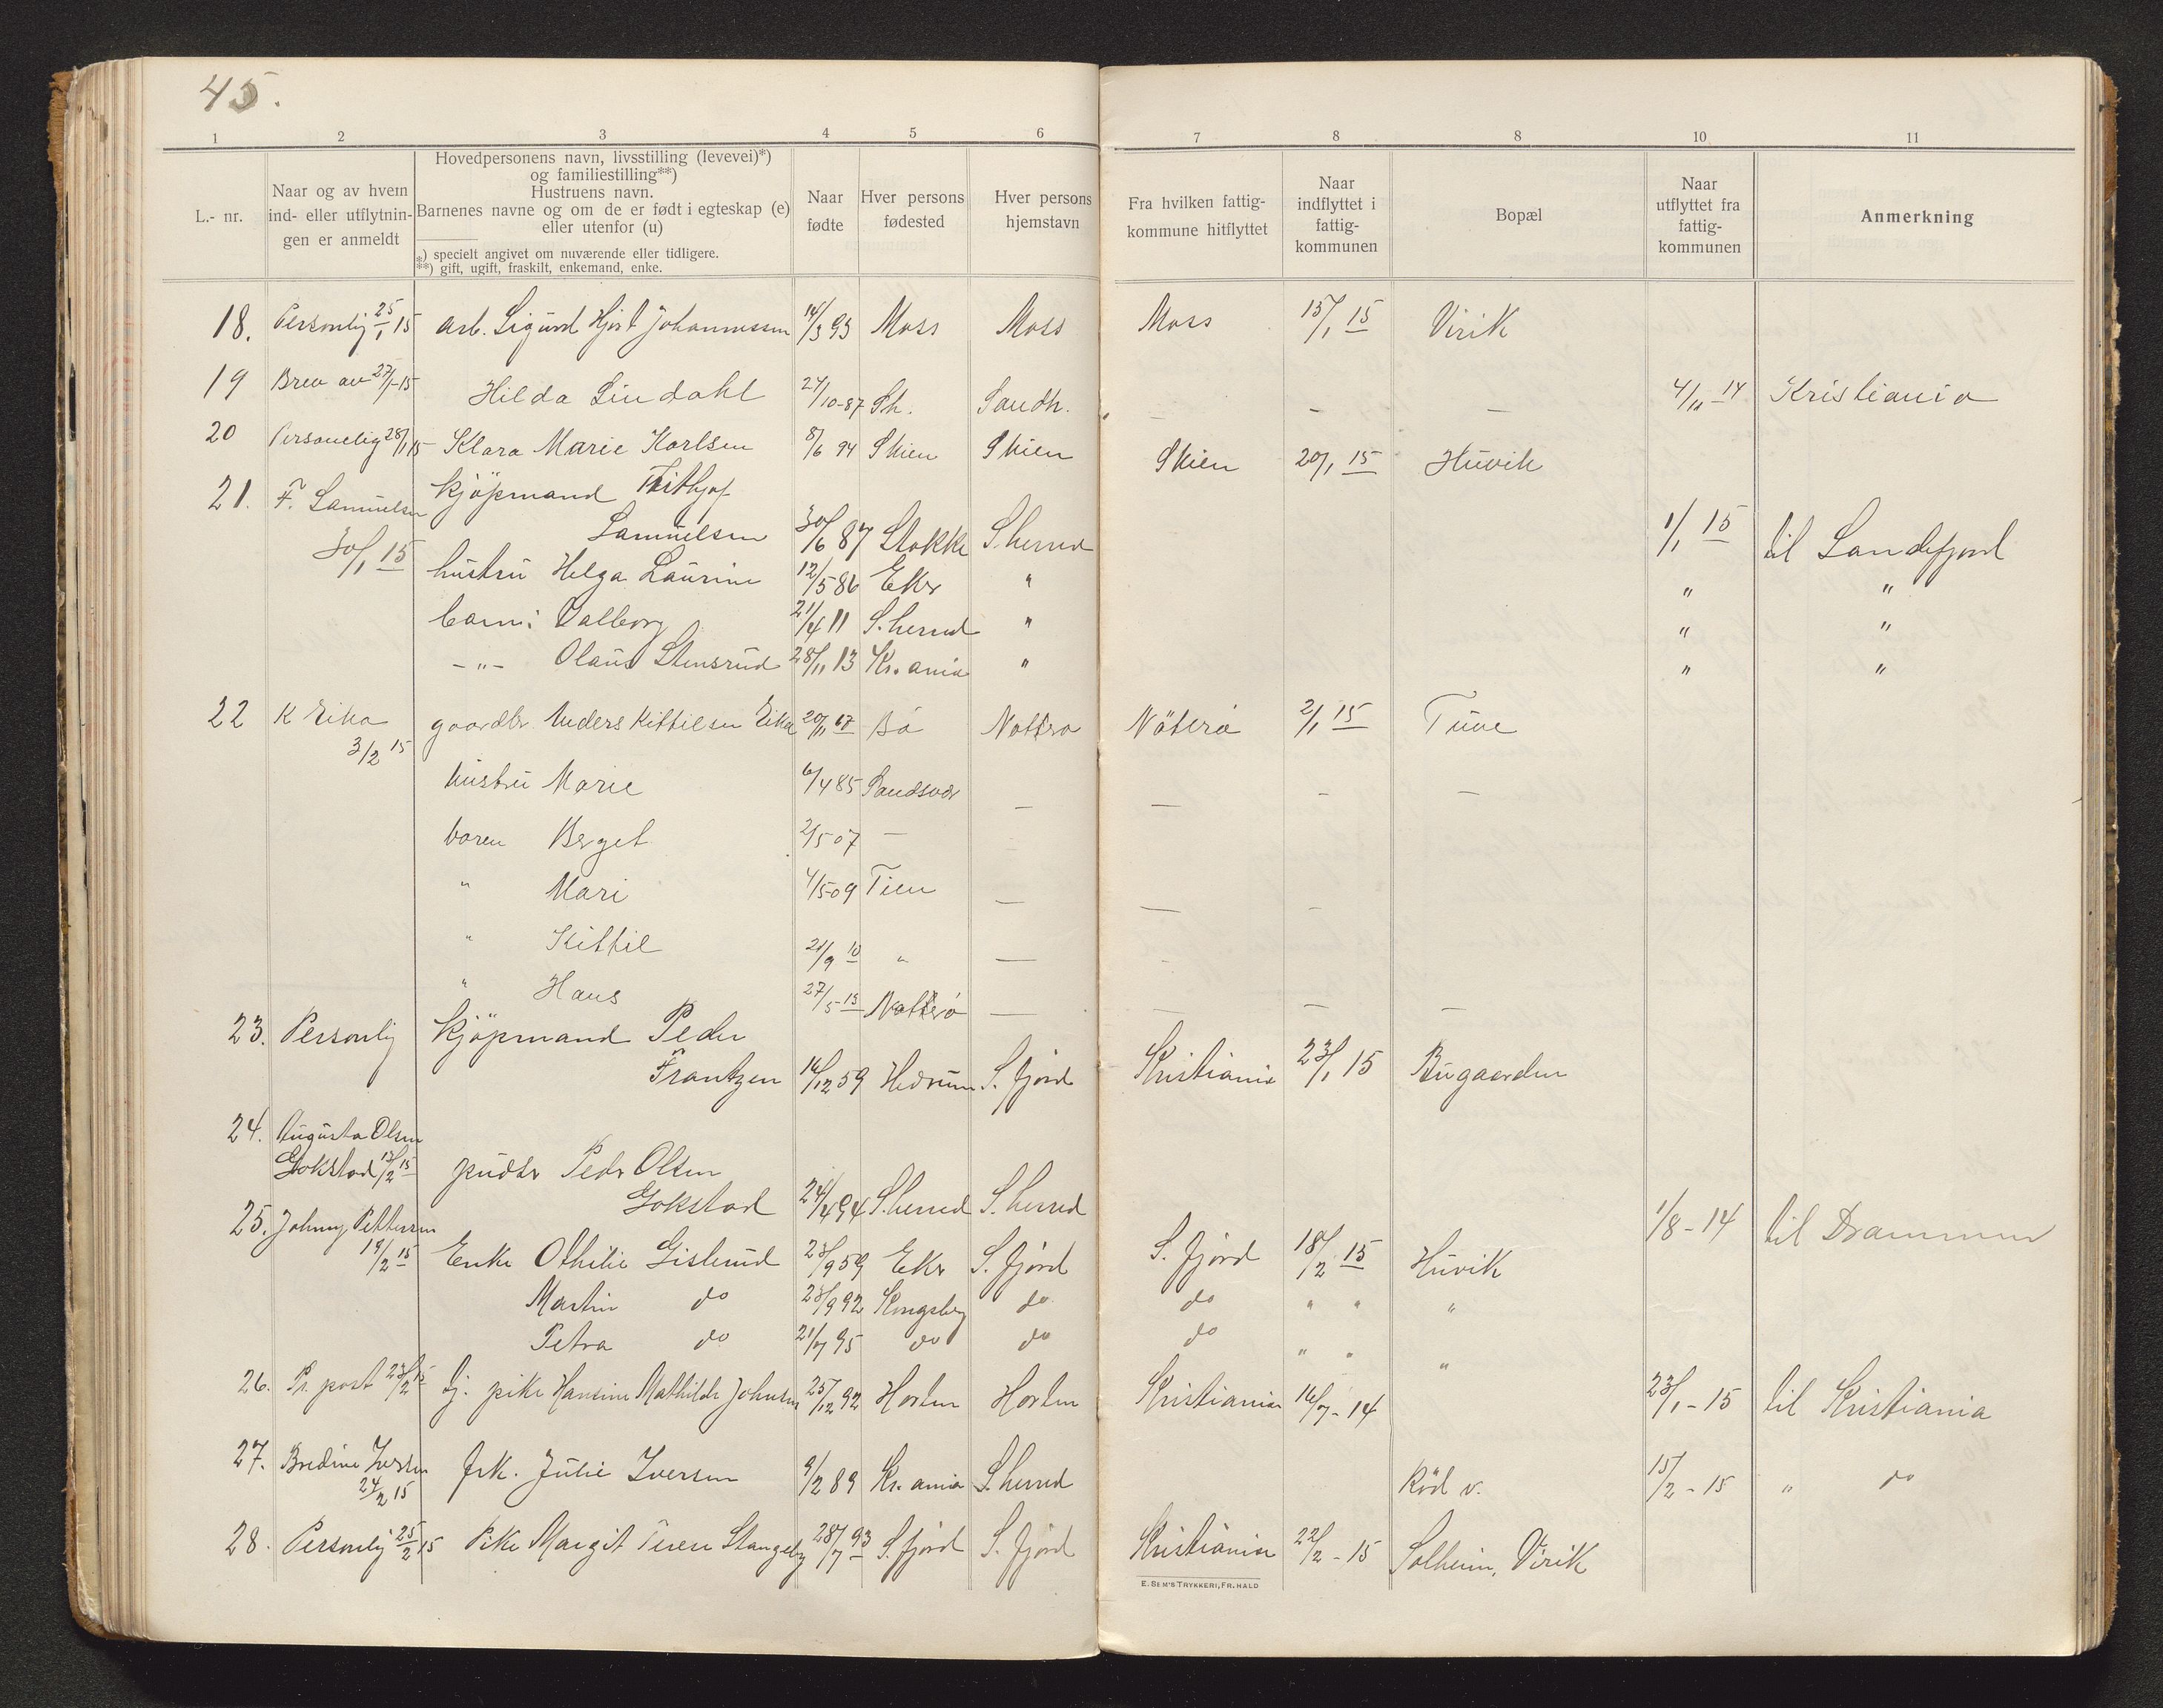 45.
1 2 3 4 5 6 7 8 8 10 11
L.- nr.
Naar og av hvem
ind- eller utflytnin-
gen er anmeldt
Hovedpersonens navn, livsstilling (levevei)*)
og familiestilling**)
Hustruens navn.
Barnenes navne og om de er født i egteskap (e)
eller utenfor (u)
*) specielt angivet om nuværende eller tidligere.
**) gift, ugift, fraskilt, enkemand, enke.
Naar
fødte
Hver persons
fødested
Hver persons
hjemstavn
Fra hvilken fattig-
kommune hitflyttet
Naar
indflyttet i
fattig-
kommunen
Bopæl
Naar
utflyttet fra
fattig-
kommunen
Anmerkning
18. Personlig 25/1 15 arb. Sigurd Hjort Johannessen 14/3 93 Moss Moss Moss 15/1 15 Virik
19 Brev av 27/1-15 Hilda Lindahl 24/10-87 Sh. Sandh. " — — — 4/11-14 Kristiania
20 Personelig 28/1 15 Klara Marie Karlsen 8/6 94 Skien Skien Skien 20/1 15 Huvik
21. F. Samuelsen kjöpmand Frithjof
30/1 15 Samuelsen 30/6 87 Stokke S.herred 1/1 15 til Sandefjord
hustru Helga Laurine 12/5 86 Eker " " "
barn: Valborg 21/4 11 S.herred " " "
-"- Olaus Stensrud 28/11 13 Kr.ania " " "
22 K Eika gaardbr. Anders Kittilsen Eika 20/11 67 Bö Nötterö Nöterö 2/1 15 Tuve
3/2 15
hustru Marie 6/4 85 Sandsvær — — — —
baren Berget 2/5 07 —
" Mari 4/5 09 Tien — — —
" Kittil 21/9 10 " —
" Hans 27/5-13 Nötterö — — — —
23. Personlig kjöpmand Peder
Frantzen 16/12 59 Hedrum S.fjord Kristiania 23/1 15 Bugaarden
24. Augusta Olsen
Gokstad 13/2 15 pudser Peder Olsen
Gokstad 24/4 94 S.herred S.herred 1/8-14 til Drammen
25. Johnny Pettersen
19/2 15 Enke Othilie Gislerud 23/9 59 Eker S.fjord S.fjord 18/2 15 Huvik
Martin do 23/9 92 Kongsberg do do " " "
Petra do 21/7 95 do do do " " "
26. Pr. post 23/2 15 tj. pike Hansine Mathilde Johnsen 25/12 92 Horten Horten Kristiania 16/7-14 23/1-15 til Kristiania
27. Bredine Iversen frk. Julie Iversen 9/2 89 Kr.ania S.herred Röd v. 15/2-15 " do
24/2 15
28. Personlig 25/2 15 Pike Margit Stangeby 28/7 93 S.fjord S.fjord Kristiania 22/2-15 Solheim, Virik
E. SEM'S TRYKKERI, FR. HALD